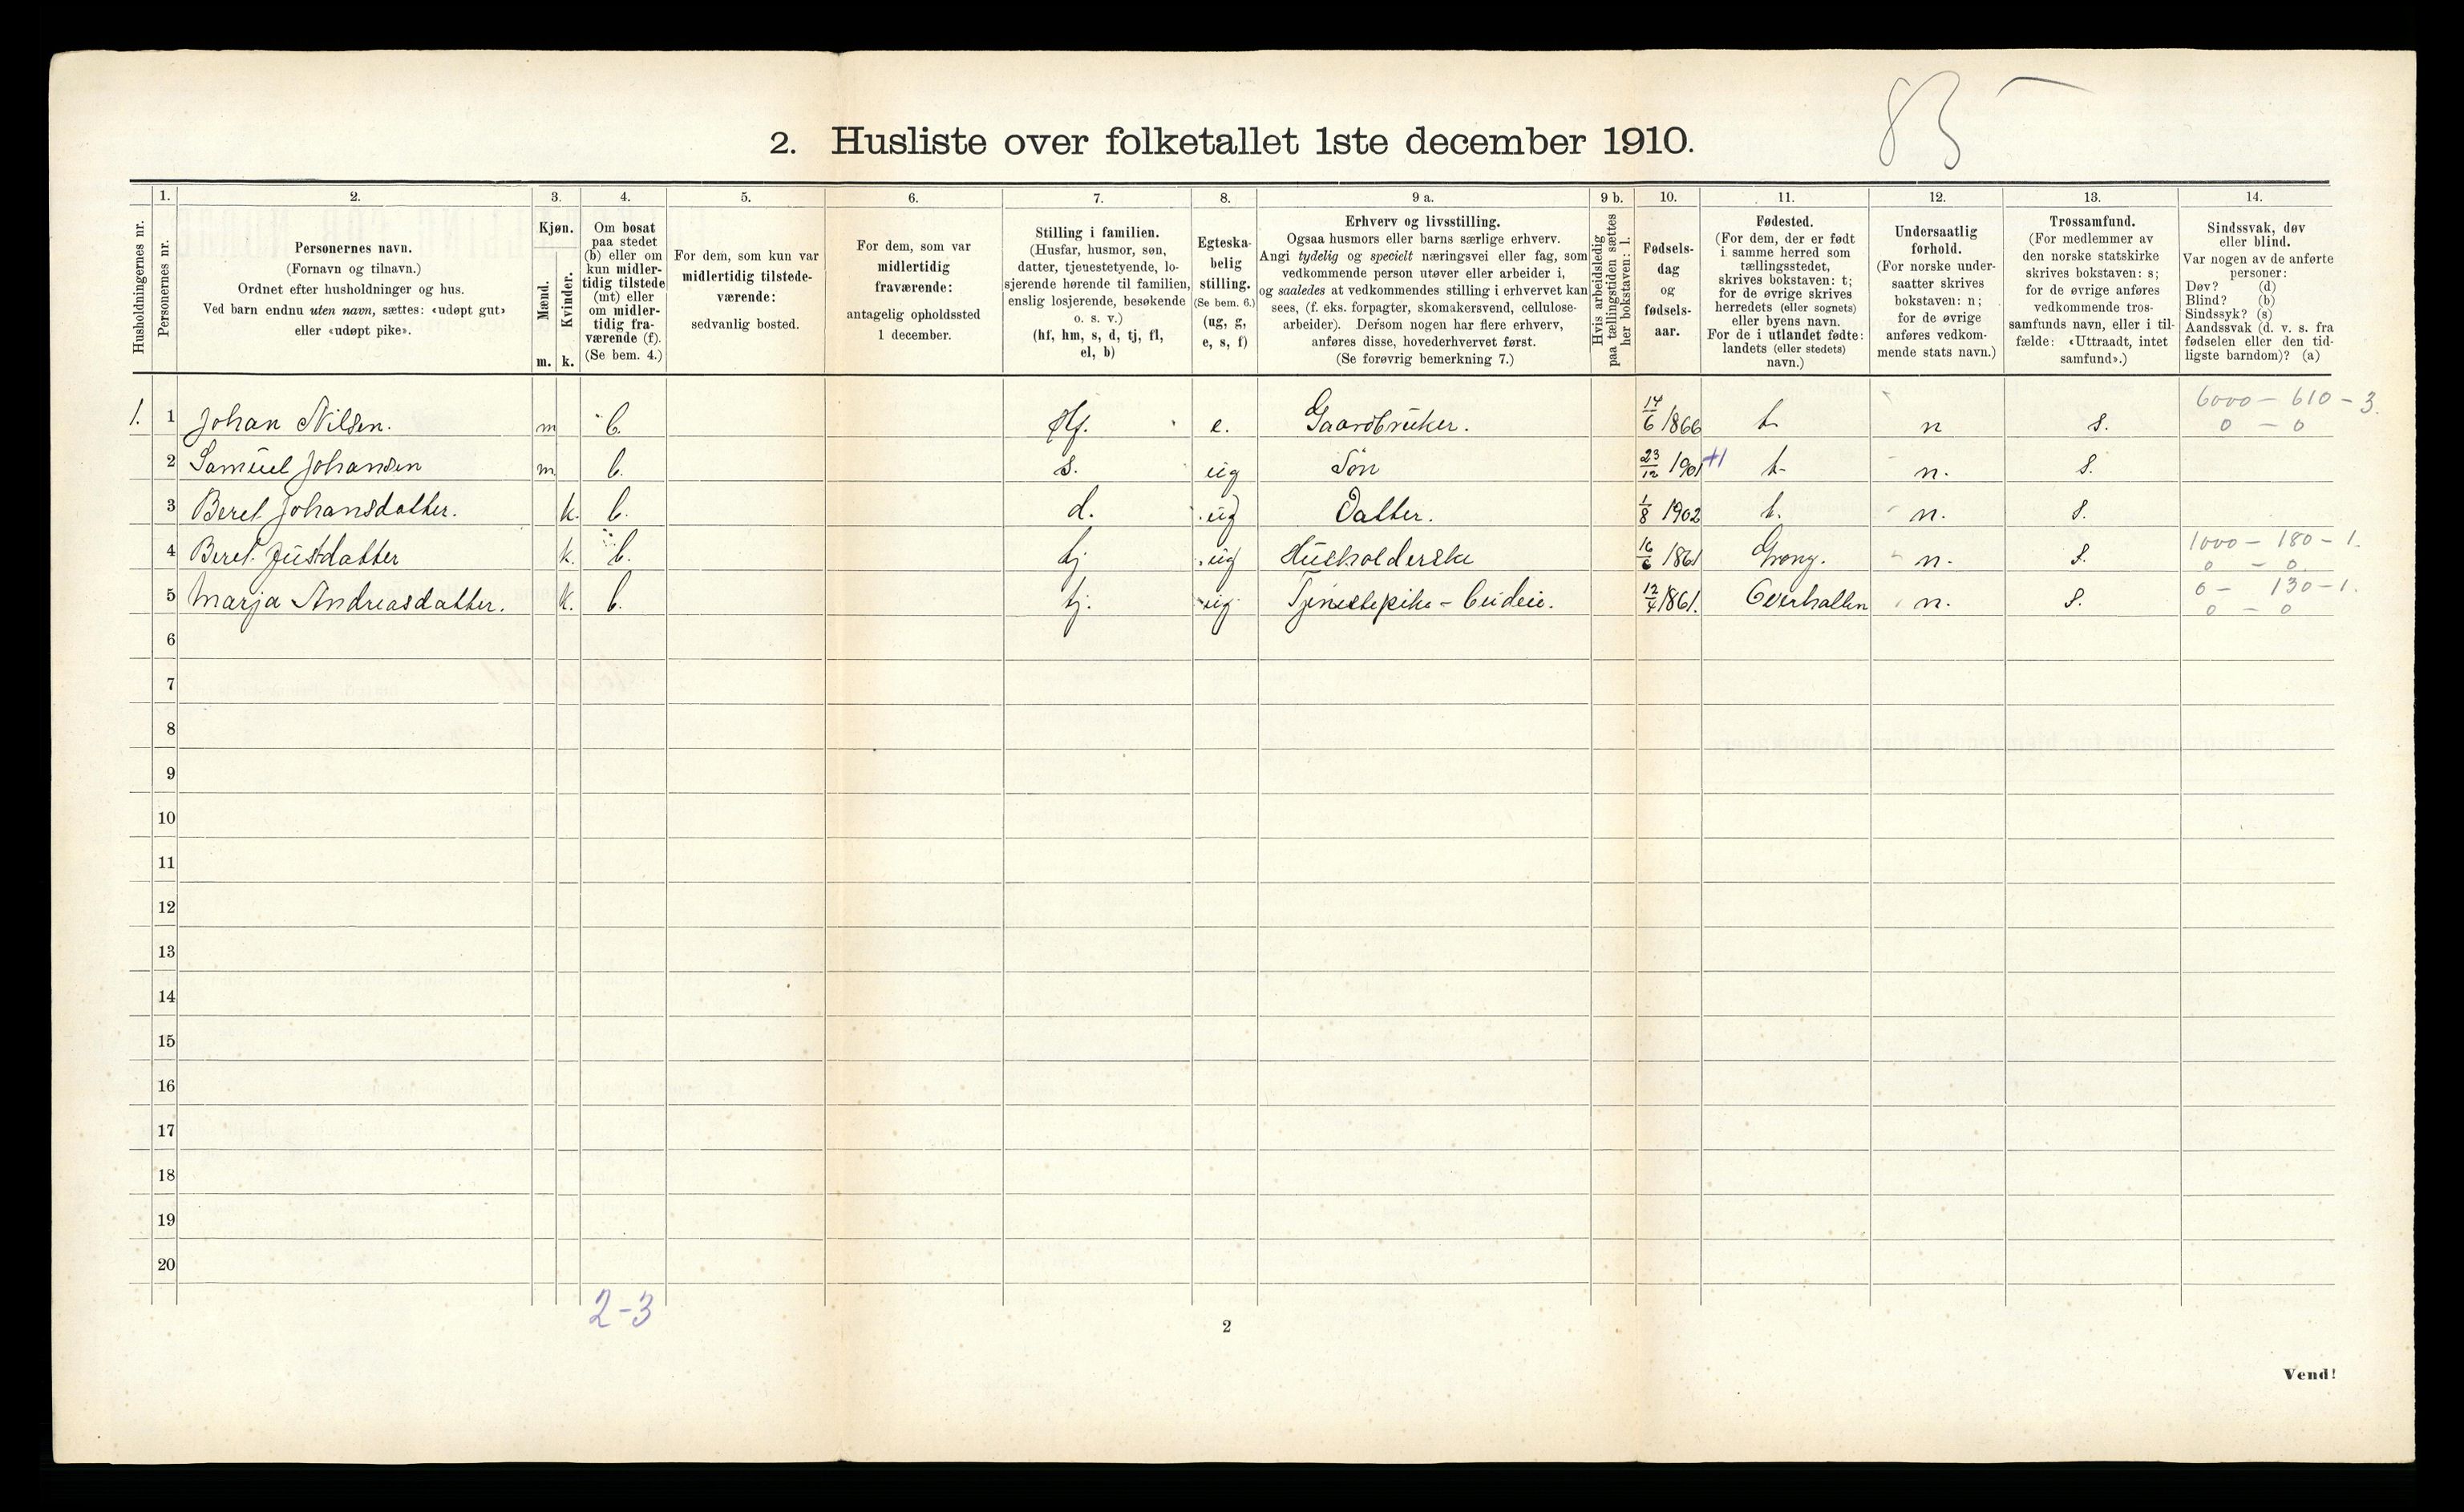 85
2. Husliste over folketallet 1ste december 1910.
Husholdningernes nr.
1.
Personernes nr.
2.
Personernes navn.
(Fornavn og tilnavn.)
Ordnet efter husholdninger og hus.
Ved barn endnu uten navn, sættes: «udøpt gut»
eller «udøpt pike».
3.
Kjøn.
Mænd.
m.
Kvinder.
k.
4.
Om bosat
paa stedet
(b) eller om
kun midler-
tidig tilstede
(mt) eller
om midler-
tidig fra-
værende (f).
(Se bem. 4.)
5.
For dem, som kun var
midlertidig tilstede-
værende:
sedvanlig bosted.
6.
For dem, som var
midlertidig
fraværende:
antagelig opholdssted
1 december.
7.
Stilling i familien.
(Husfar, husmor, søn,
datter, tjenestetyende, lo-
sjerende hørende til familien,
enslig losjerende, besøkende
o. s. v.)
(hf, hm, s, d, tj, fl,
el, b)
8.
Egteska-
belig
stilling.
(Se bem. 6.)
(ug, g,
e, s, f)
9 a.
Erhverv og livsstilling.
Ogsaa husmors eller barns særlige erhverv.
Angi tydelig og specielt næringsvei eller fag, som
vedkommende person utøver eller arbeider i,
og saaledes at vedkommendes stilling i erhvervet kan
sees, (f. eks. forpagter, skomakersvend, cellulose-
arbeider). Dersom nogen har flere erhverv,
anføres disse, hovederhvervet først.
(Se forøvrig bemerkning 7.)
9 b.
Hvis arbeidsledig
paa tællingstiden sættes
her bokstaven: l.
10.
Fødsels-
dag
og
fødsels-
aar.
11.
Fødested.
(For dem, der er født
i samme herred som
tællingsstedet,
skrives bokstaven: t;
for de øvrige skrives
herredets (eller sognets)
eller byens navn.
For de i utlandet fødte:
landets (eller stedets)
navn.)
12.
Undersaatlig
forhold.
(For norske under-
saatter skrives
bokstaven: n;
for de øvrige
anføres vedkom-
mende stats navn.)
13.
Trossamfund.
(For medlemmer av
den norske statskirke
skrives bokstaven: s;
for de øvrige anføres
vedkommende tros-
samfunds navn, eller i til-
fælde: «Uttraadt, intet
samfund».)
14.
Sindssvak, døv
eller blind.
Var nogen av de anførte
personer:
Døv? (d)
Blind? (b)
Sindssyk? (s)
Aandssvak (d. v. s. fra
fødselen eller den tid-
ligste barndom)? (a)
1. 1 Johan Nilsen. m b. Hf. e. Gaardbruker. 14/6 1866 t. n s. 6000 - 610 - 3. 0 - 0
2 Samuel Johansen m b. s. ug Søn 23/12 1901 +1 t. n. s.
3 Beret Johansdatter. k. b. d. ug Datter. 1/8 1902 t. n. s.
4 Beret Justdatter k. b. tj ug Husholderske 16/6 1861 Grong. n. s. 1000 - 180 - 1. 0 - 0.
5 Marja Andreasdatter. k. b. tj. ug Tjenestepike - budeie. 12/4 1861. Overhallen n. s. 0 - 130 - 1. 0 - 0
6
7
8
9
10
11
12
13
14
15
16
17
18
19
20
2-3
2
Vend!